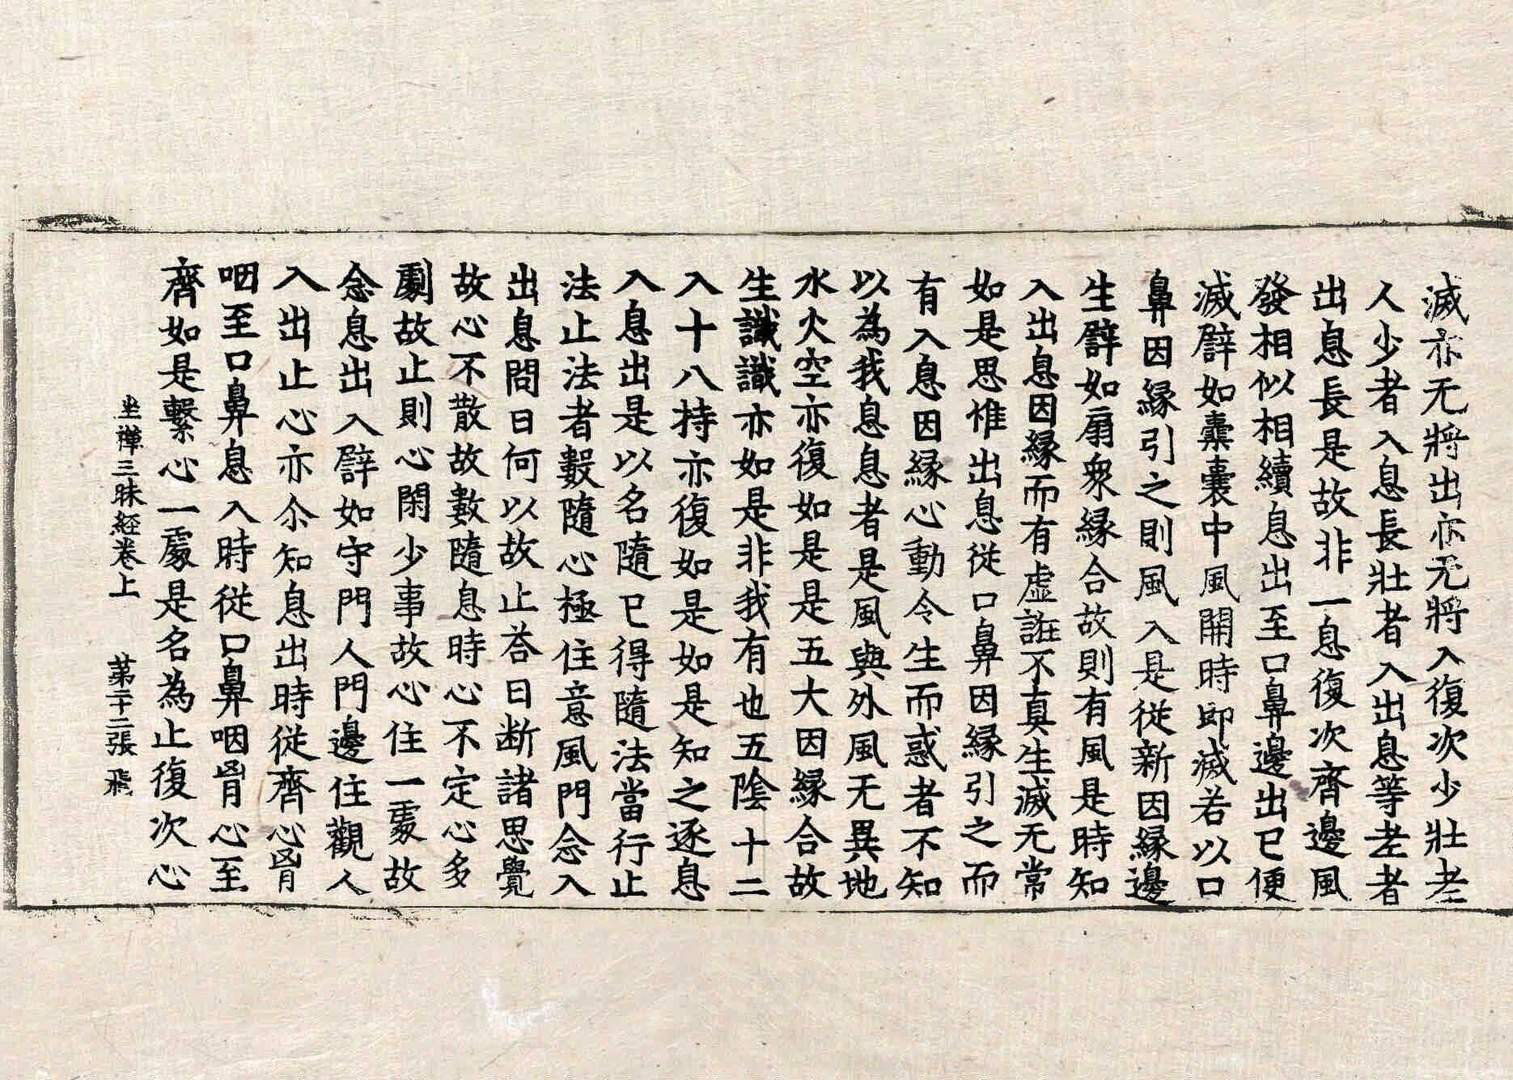 滅亦无將出亦无將入復次少壯老
人少者入息長壯者入出息等老者
出息長是故非一息復次齊邊風
發相似相續息出至口鼻邊出已便
滅譬如橐囊中風開時即滅若以口
鼻因縁引之則風入是從新因縁邊
生譬如扇衆縁合故則有風是時知
入出息因縁而有虚誑不真生滅无常
如是思惟出息從口鼻因縁引之而
有入息因縁心動令生而惑者不知
以為我息息者是風與外風无異地
水火空亦復如是是五大因縁合故
生識識亦如是非我有也五陰十二
入十八持亦復如是如是知之逐息
入息出是以名隨已得隨法當行止
法止法者數隨心極住意風門念入
出息問曰何以故止荅曰断諸思覺
故心不散故數隨息時心不定心多
劇故止則心閑少事故心住一處故
念息出入譬如守門人門邊住觀人
入出止心亦尒知息出時從齊心胷
咽至口鼻息入時從口鼻咽胷心至
齊如是繋心一處是名為止復次心
坐禪三昧經卷上 苐二十二張 飛